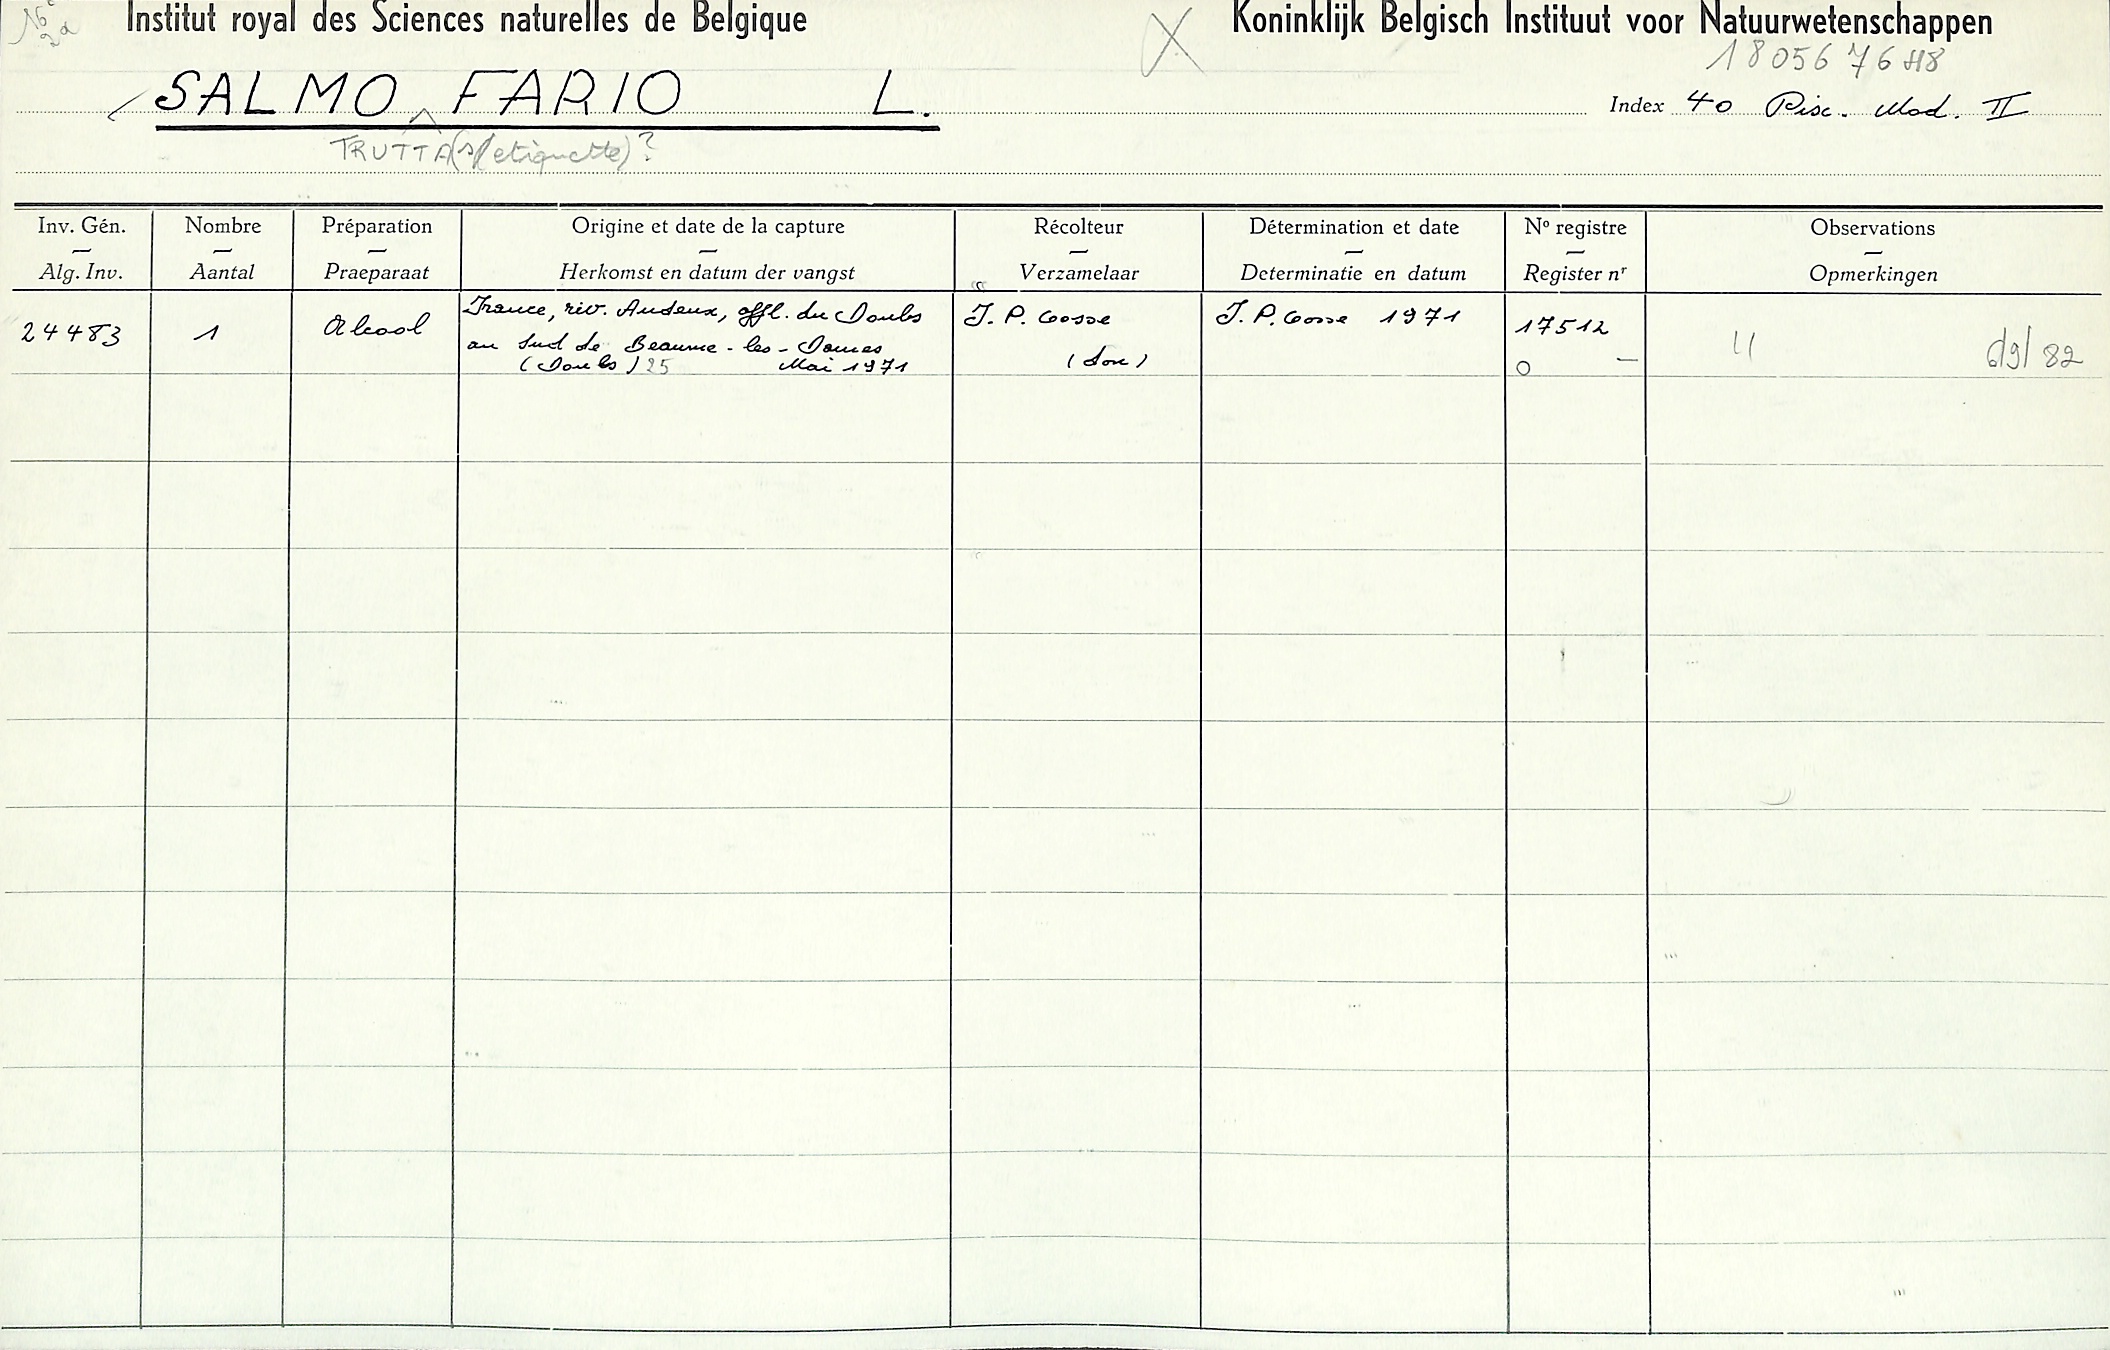 Institut royal des Sciences naturelles de Belgique
Koninklijk Belgisch Instituut voor Natuurwetenschappen
SALMO FARIO L.
Index 40 Pisc. Mod. II
TRUTTA (s/etiquette)?
Inv. Gén. Nombre Préparation Origine et date de la capture Récolteur Détermination et date Nº registre Observations
Alg. Inv. Aantal Praeparaat Herkomst en datum der vangst Verzamelaar Determinatie en datum Register nr Opmerkingen
24483 1 Alcool France, riv. Audeux, affl. du Doubs J. P. Gosse J. P. Gosse 1971 17512
au Sud de Beaume-les-Dames (don) 6/9/82
(Doubs) 25 Mai 1971